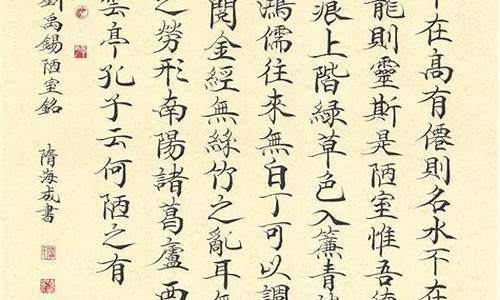 不在高有僊則名水不在
龍則靈斯是陋室惟吾德
痕上階綠草色入簾青
鴻儒往來無白丁可以調
閱金經無絲竹之亂耳無
之勞形南陽諸葛廬西
雲亭孔子云何陋之有
劉禹錫陋室銘 隋海成書